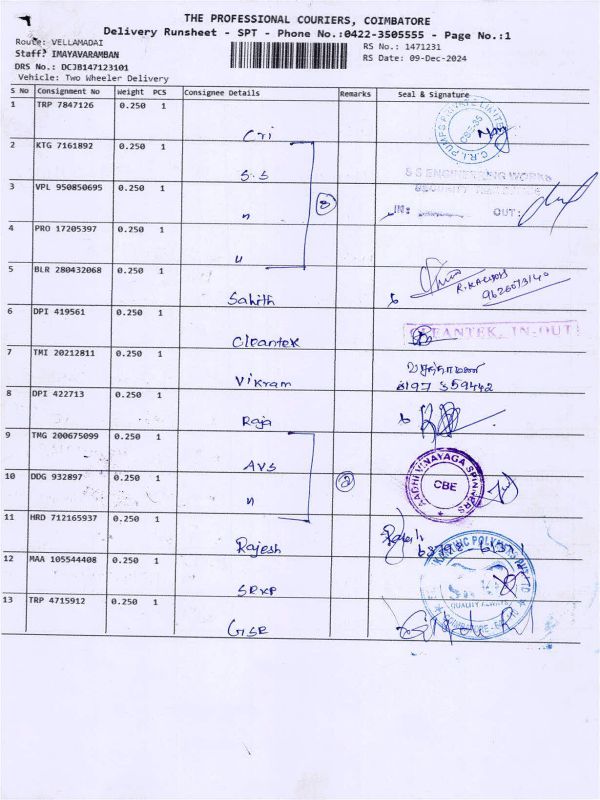 THE PROFESSIONAL COURIERS, COIMBATORE
Delivery Runsheet - SPT - Phone No.:0422-3505555 - Page No.:1
Route: VELLAMADAI
RS No.: 1471231
Staff: IMAYAVARAMBAN
RS Date: 09-Dec-2024
DRS No.: DCJB147123101
Vehicle: Two Wheeler Delivery
S No Consignment No Weight PCS Consignee Details Remarks Seal & Signature
1 TRP 7847126 0.250 1 Cri C.R.I. PUMPS PRIVATE LIMITED CBE-35
2 KTG 7161892 0.250 1 S.S S S ENGINEERING WORKS
3 VPL 950850695 0.250 1 " 3 IN: OUT:
4 PRO 17205397 0.250 1 "
5 BLR 280432068 0.250 1 Sahith
6 DPI 419561 0.250 1 Cleantek CLEANTEK IN-OUT
7 TMI 20212811 0.250 1 Vikram
8 DPI 422713 0.250 1 Raja
9 TMG 200675099 0.250 1 AVS AADHI VINAYAGA SPINNERS CBE
10 DDG 932897 0.250 1 " 2
11 HRD 712165937 0.250 1 Rajesh Rajesh
12 MAA 105544408 0.250 1 SRKP QUALITY ALWAYS
13 TRP 4715912 0.250 1 GSR